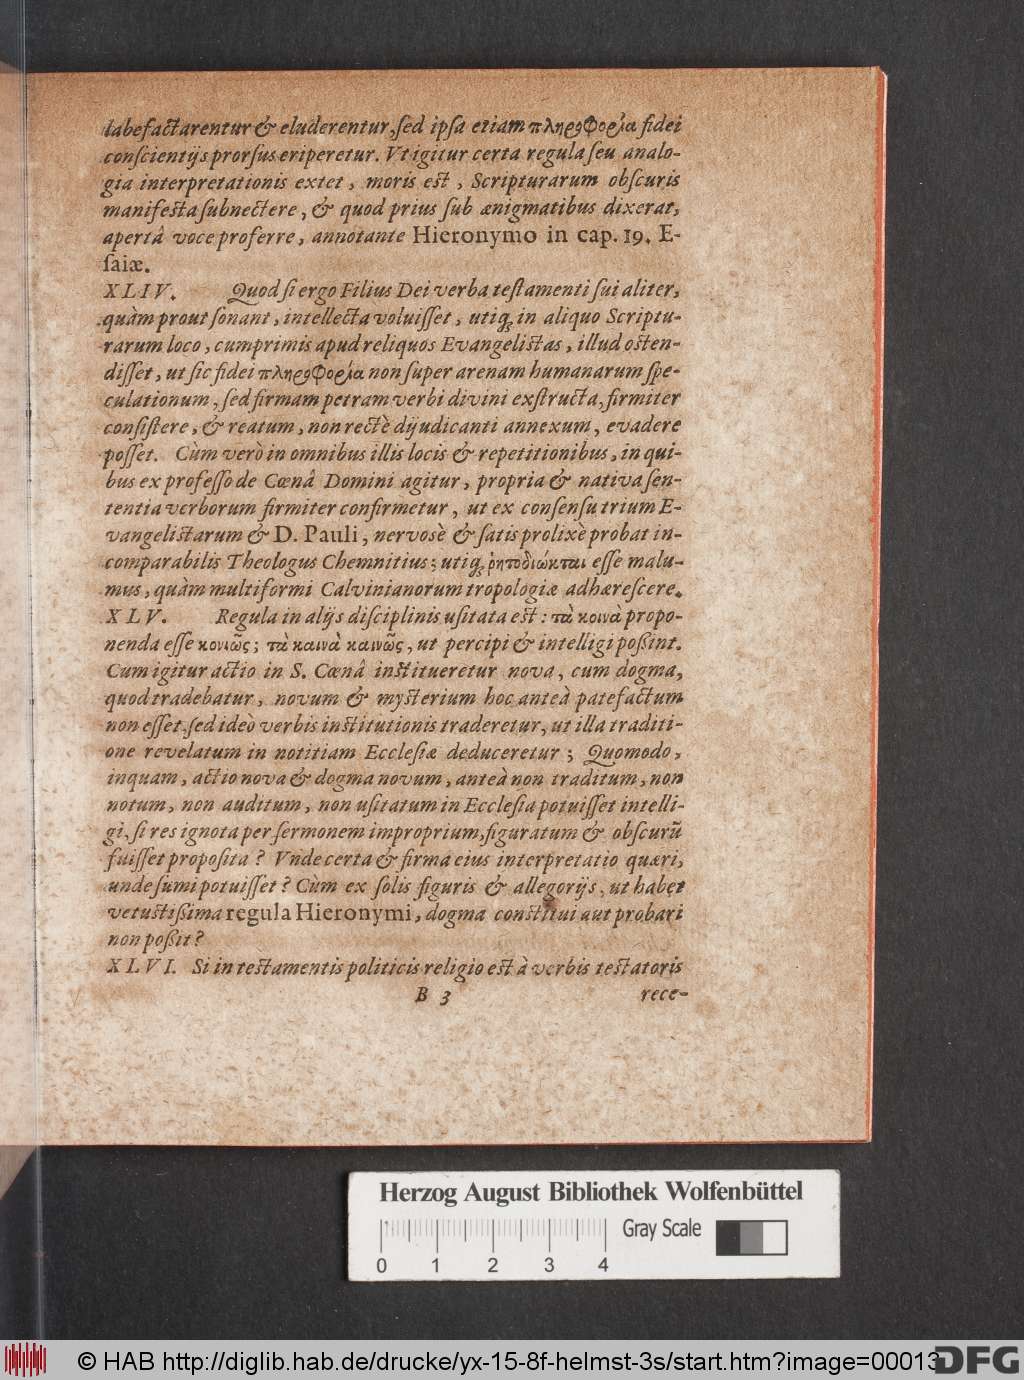 labefactarentur & eluderentur, sed ipsa etiam πληροφορία fidei
conscientijs prorsus eriperetur. Vt igitur certa regula seu analo-
gia interpretationis extet, moris est, Scripturarum obscuris
manifesta subnectere, & quod prius sub ænigmatibus dixerat,
apertâ voce proferre, annotante Hieronymo in cap. 19. E-
saiæ.
XLIV. Quod si ergo Filius Dei verba testamenti sui aliter,
quàm prout sonant, intellecta voluisset, utiq; in aliquo Scriptu-
rarum loco, cumprimis apud reliquos Evangelistas, illud osten-
disset, ut sic fidei πληροφορία non super arenam humanarum spe-
culationum, sed firmam petram verbi divini exstructa, firmiter
consistere, & reatum, non rectè dijudicanti annexum, evadere
posset. Cùm verò in omnibus illis locis & repetitionibus, in qui-
bus ex professo de Cœnâ Domini agitur, propria & nativa sen-
tentia verborum firmiter confirmetur, ut ex consensu trium E-
vangelistarum & D. Pauli, nervosè & satis prolixè probat in-
comparabilis Theologus Chemnitius; utiq; ῥητοδιώκται esse malu-
mus, quàm multiformi Calvinianorum tropologiæ adhærescere.
XLV. Regula in alijs disciplinis usitata est: τὰ κοινὰ propo-
nenda esse κονιῶς; τὰ καινὰ καινῶς, ut percipi & intelligi poßint.
Cum igitur actio in S. Cœnâ institueretur nova, cum dogma,
quod tradebatur, novum & mysterium hoc anteà patefactum
non esset, sed ideò verbis institutionis traderetur, ut illa traditi-
one revelatum in notitiam Ecclesiæ deduceretur; Quomodo,
inquam, actio nova & dogma novum, anteà non traditum, non
notum, non auditum, non usitatum in Ecclesia potuisset intelli-
gi, si res ignota per sermonem improprium, figuratum & obscurũ
fuisset proposita? Vnde certa & firma eius interpretatio quæri,
unde sumi potuisset? Cùm ex solis figuris & allegorijs, ut habet
vetustißima regula Hieronymi, dogma constitui aut probari
non poßit?
XLVI. Si in testamentis politicis religio est à verbis testatoris
B 3 rece-
Herzog August Bibliothek Wolfenbüttel
Gray Scale
0 1 2 3 4
© HAB http://diglib.hab.de/drucke/yx-15-8f-helmst-3s/start.htm?image=00013
DFG